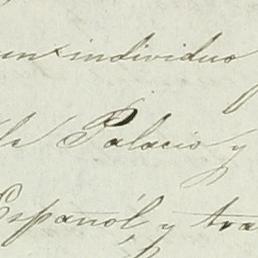 un individuo
de Palacio y
Español y tra